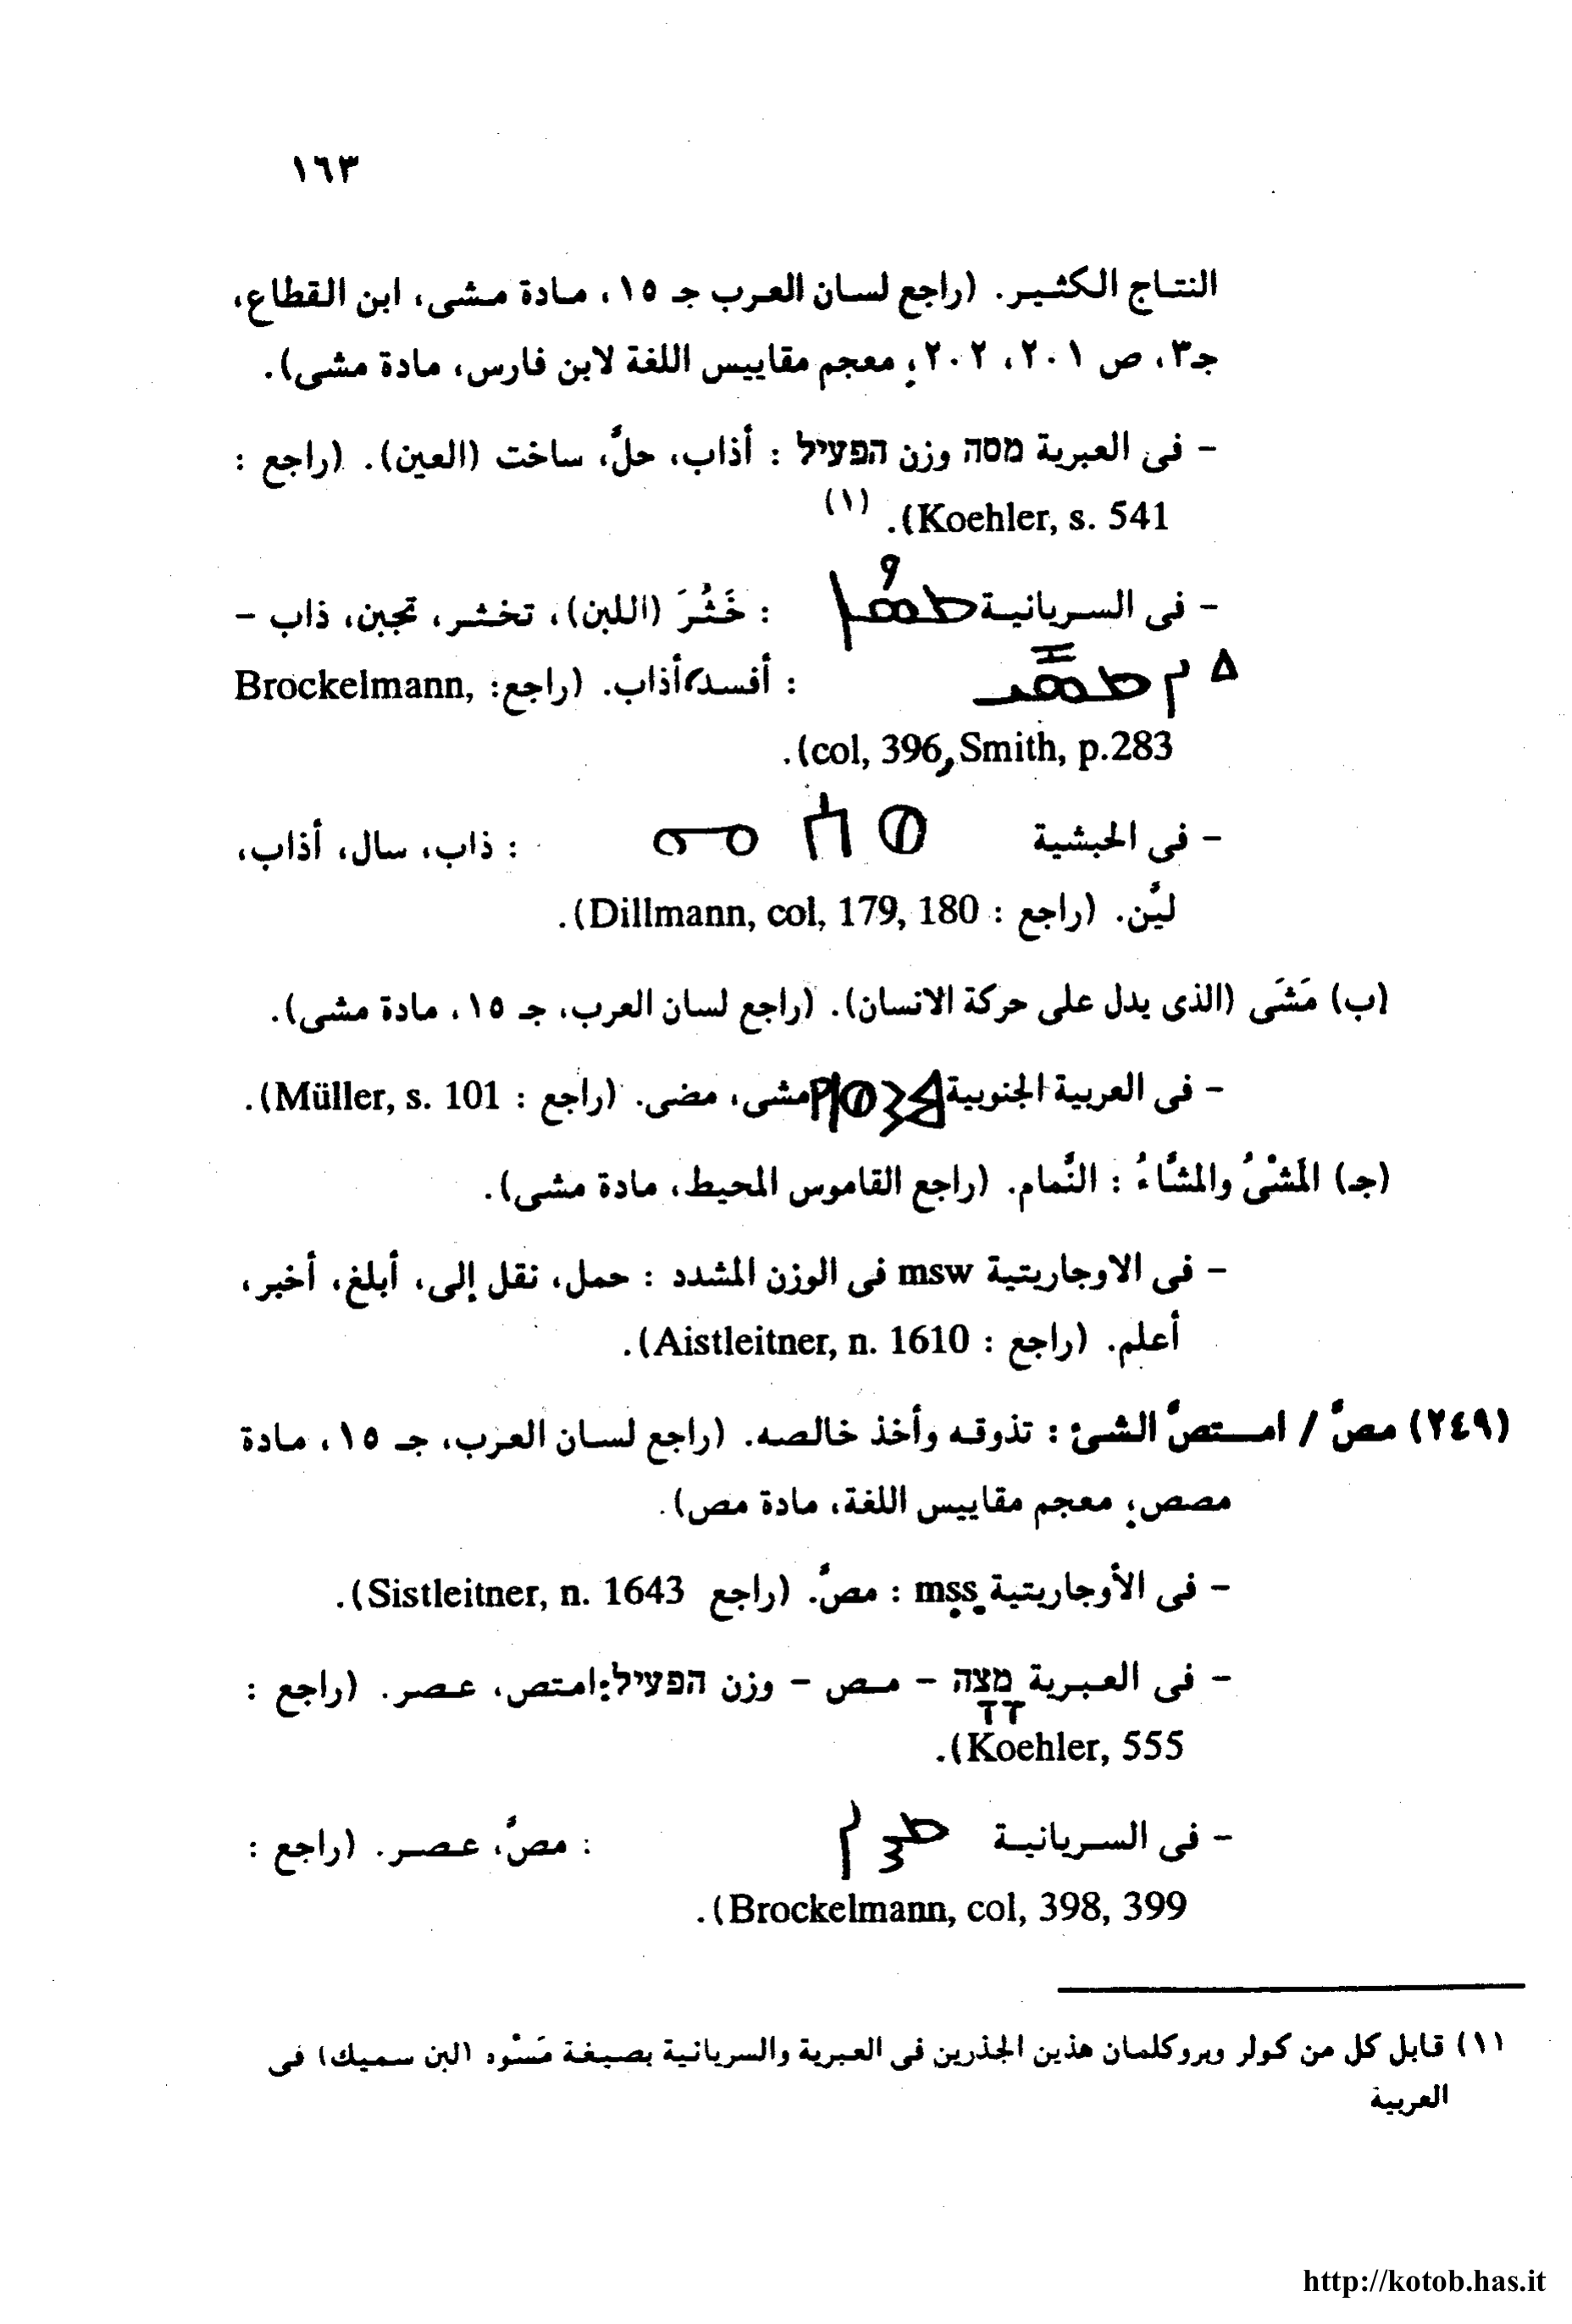 ١٦٣
النتاج الكثير. (راجع لسان العرب جـ ١٥، مادة مشى، ابن القطاع،
جـ٣، ص ٢٠١، ٢٠٢؛ معجم مقاييس اللغة لابن فارس، مادة مشى).
- فى العبرية מסה وزن הפעיל : أذاب، حلَّ، ساخت (العين). (راجع :
Koehler, s. 541). (١)
- فى السريانية : خَثُرَ (اللبن)، تخثر، تجبن، ذاب -
: أفسد، أذاب. (راجع: Brockelmann,
col, 396, Smith, p.283).
- فى الحبشية : ذاب، سال، أذاب،
ليَّن. (راجع : Dillmann, col, 179, 180).
(ب) مَشَى (الذى يدل على حركة الانسان). (راجع لسان العرب، جـ ١٥، مادة مشى).
- فى العربية الجنوبية مشى، مضى. (راجع : Müller, s. 101).
(جـ) المَشْىُ والمشَّاءُ : النَّمام. (راجع القاموس المحيط، مادة مشى).
- فى الاوجاريتية msw فى الوزن المشدد : حمل، نقل إلى، أبلغ، أخبر،
أعلم. (راجع : Aistleitner, n. 1610).
(٢٤٩) مصَّ / امتصَّ الشئ : تذوقه وأخذ خالصه. (راجع لسان العرب، جـ ١٥، مادة
مصص؛ معجم مقاييس اللغة، مادة مص).
- فى الأوجاريتية mṣṣ : مصَّ. (راجع Sistleitner, n. 1643).
- فى العبرية מָצָה - مص - وزن הפעיל: امتص، عصر. (راجع :
Koehler, 555).
- فى السريانية : مصَّ، عصر. (راجع :
Brockelmann, col, 398, 399).
(١) قابل كل من كولر وبروكلمان هذين الجذرين فى العبرية والسريانية بصيغة مَسْوه (لبن سميك) فى
العربية
http://kotob.has.it